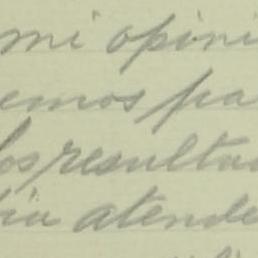 mi opini
emos pa
los resulta
atende